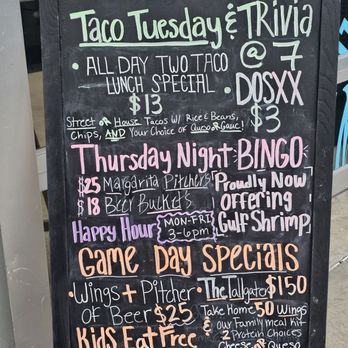 Taco Tuesday & TRIVIA
@ 7
• ALL DAY TWO TACO
LUNCH SPECIAL •
$13
DOSXX
$3
Street or House Tacos w/ Rice & Beans,
Chips, AND Your Choice of Queso or Guac!
Thursday Night BINGO
$25 Margarita Pitchers
$18 Beer Buckets
Proudly Now
offering
Gulf Shrimp
Happy Hour
MON-FRI
3-6pm
GAME DAY SPECIALS
• Wings + Pitcher
of Beer $25
• The Tailgater $150
Take Home 50 Wings
& our family meal kit
2 Protein Choices
Cheese & Queso
Kids Eat Free